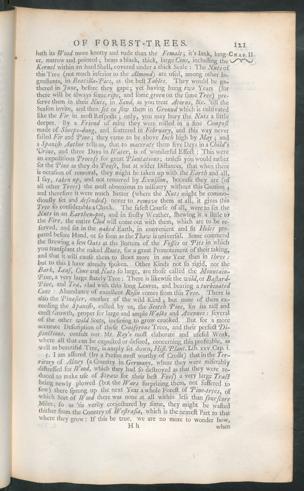 OF FOREST-TREES. 121
hath its Wood more knotty and rude than the Female; it's lank, long- CHAP. II.
er, narrow and pointed; bears a black, thick, large Cone, including the
Kernel within an hard Shell, covered under a thick Scale: The Nuts of
this Tree (not much inferior to the Almond) are used, among other In-
gredients, in Beatilla-Pies, at the best Tables. They would be ga-
thered in June, before they gape; yet having hung two Years (for
there will be always some ripe, and some green on the same Tree) pre-
serve them in their Nuts, in Sand, as you treat Acorns, &c. 'till the
Season invite, and then set or sow them in Ground which is cultivated
like the Fir in most Respects; only, you may bury the Nuts a little
deeper. By a Friend of mine they were rolled in a fine Compost
made of Sheeps-dung, and scattered in February, and this way never
failed Fir and Pine; they came to be above Inch high by May; and
a Spanish Author tells us, that to macerate them five Days in a Child's
Urine, and three Days in Water, is of wonderful Effect: This were
an expeditious Process for great Plantations; unless you would rather
set the Pine as they do Pease, but at wider Distances, that when there
is occasion of removal, they might be taken up with the Earth and all,
I say, taken up, and not removed by Evulsion, because they are (of
all other Trees) the most obnoxious to miscarry without this Caution;
and therefore it were much better (where the Nuts might be commo-
diously set and defended) never to remove them at all, it gives this
Tree so considerable a Check. The safest Course of all, were to set the
Nuts in an Earthen-pot, and in frosty Weather, shewing it a little to
the Fire, the entire Clod will come out with them, which are to be re-
served, and set in the naked Earth, in convenient and fit Holes pre-
pared before Hand, or so soon as the Thaw is universal. Some commend
the strewing a few Oats at the Bottom of the Fosses or Pits in which
you transplant the naked Roots, for a great Promotement of their taking,
and that it will cause them to shoot more in one Year than in three:
but to this I have already spoken. Other Kinds not so rigid, nor the
Bark, Leaf, Cone and Nuts so large, are those called the Mountain-
Pine, a very large stately Tree: There is likewise the wild, or Bastard-
Pine, and Tea, clad with thin long Leaves, and bearing a turbinated
Cone: Abundance of excellent Rosin comes from this Tree. There is
also the Pinaster, another of the wild Kind; but none of them ex-
ceeding the Spanish, called by us, the Scotch Pine, for its tall and
erect Growth, proper for large and ample Walks and Avenues: several
of the other wild Sorts, inclining to grow crooked. But for a more
accurate Description of these Coniferous Trees, and their perfect Di-
stinctions, consult our Mr. Ray's most elaborate and useful Work,
where all that can be expected or desired, concerning this profitable, as
well as beautiful Tree, is amply set down, Hist. Plant. Lib. xxv. Cap. 1.
5. I am assured (by a Person most worthy of Credit) that in the Ter-
ritory of Alzey (a Country in Germany, where they were miserably
distressed for Wood, which they had so destroyed as that they were re-
duced to make use of Straw for their best Fuel) a very large Tract
being newly plowed (but the Wars surprizing them, not suffered to
sow) there sprung up the next Year a whole Forest of Pine-trees, of
which Sort of Wood there was none at all within less than fourscore
Miles; so as 'tis verily conjectured by some, they might be wafted
thither from the Country of Westrasia, which is the nearest Part to that
where they grow: If this be true, we are no more to wonder how,
H h when